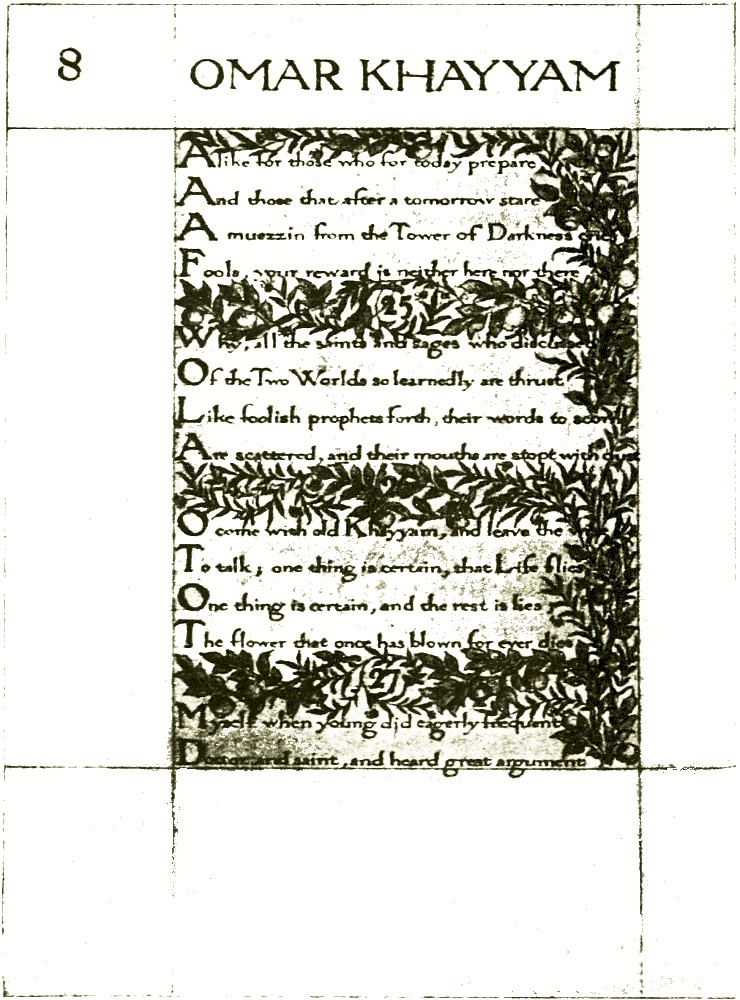 8
OMAR KHAYYAM
Alike for those who for today prepare
And those that after a tomorrow stare
A muezzin from the Tower of Darkness cries
Fools, your reward is neither here nor there
25
Why, all the saints and sages who discussed
Of the Two Worlds so learnedly are thrust
Like foolish prophets forth, their words to scorn
Are scattered, and their mouths are stopt with dust
O come with old Khayyam, and leave the
To talk; one thing is certain, that Life flies
One thing is certain, and the rest is lies
The flower that once has blown for ever dies
27
Myself when young did eagerly frequent
Doctor and saint, and heard great argument